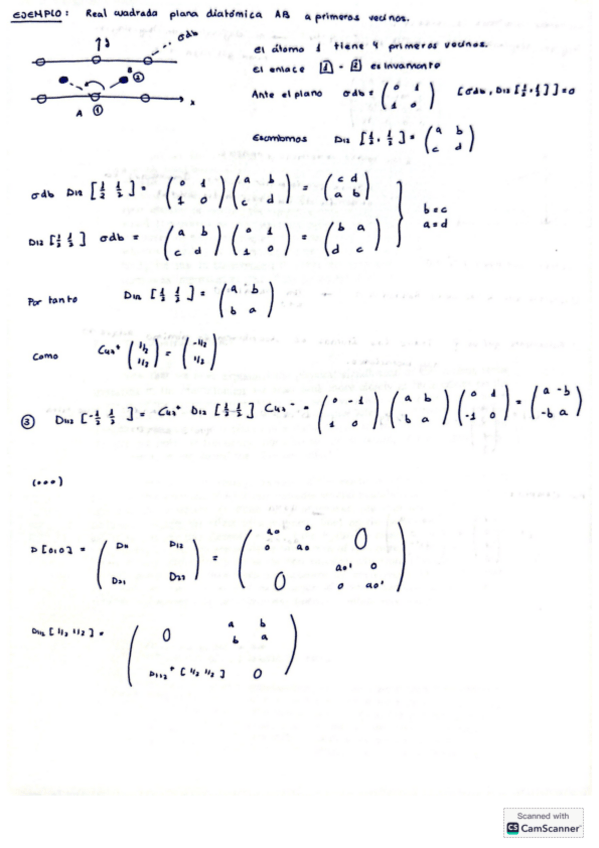 EJEMPLO: Real cuadrada plana diatómica AB a primeros vecinos.
y
σdb
B
②
A ①
x
el átomo 1 tiene 4 primeros vecinos.
el enlace [1] - [2] es invariante
Ante el plano σdb = (0 1; 1 0) [σdb, D12 [½, ½]] = 0
Escribimos D12 [½, ½] = (a b; c d)
σdb D12 [½ ½] = (0 1; 1 0) (a b; c d) = (c d; a b)
D12 [½ ½] σdb = (a b; c d) (0 1; 1 0) = (b a; d c)
b = c
a = d
Por tanto D12 [½ ½] = (a b; b a)
Como C4z⁺ (1/2; 1/2) = (-1/2; 1/2)
③ [-½ ½] = C4z⁺ D12 [½ ½] C4z⁻ = (0 -1; 1 0) (a b; b a) (0 1; -1 0) = (a -b; -b a)
(...)
D [0,0] = (D11 D12; D21 D22) = (a0 0; 0 a0) 0 0 (a0' 0; 0 a0')
[1/2 1/2] = (0 a b; b a; [1/2 1/2] 0)
Scanned with
CS CamScanner